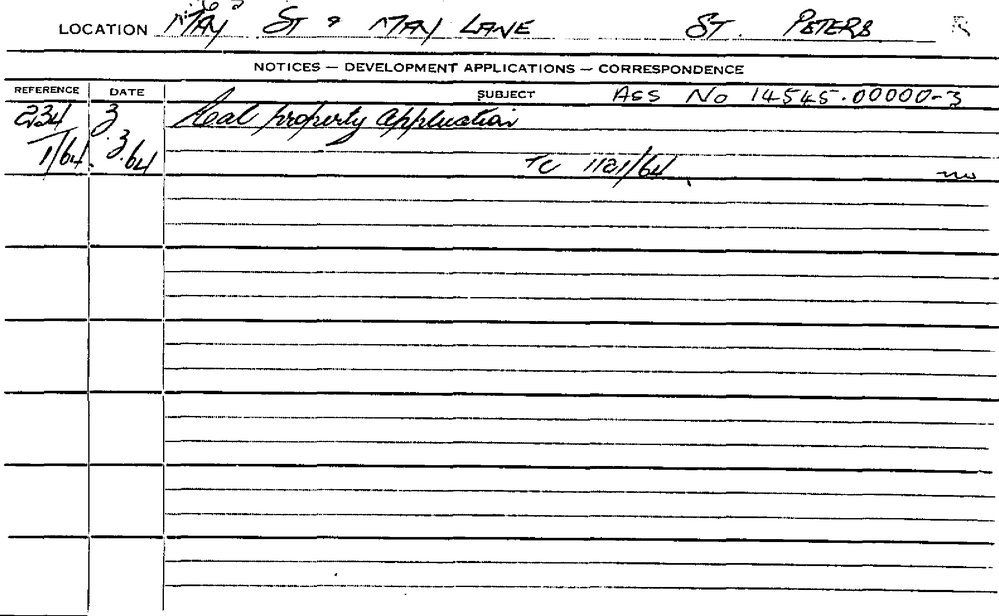 LOCATION MAY ST & MAY LANE ST. PETERS
NOTICES — DEVELOPMENT APPLICATIONS — CORRESPONDENCE
REFERENCE DATE SUBJECT ASS No 14545.00000-3
234 3 Real property Application
1/64 3.64
TC 1121/64